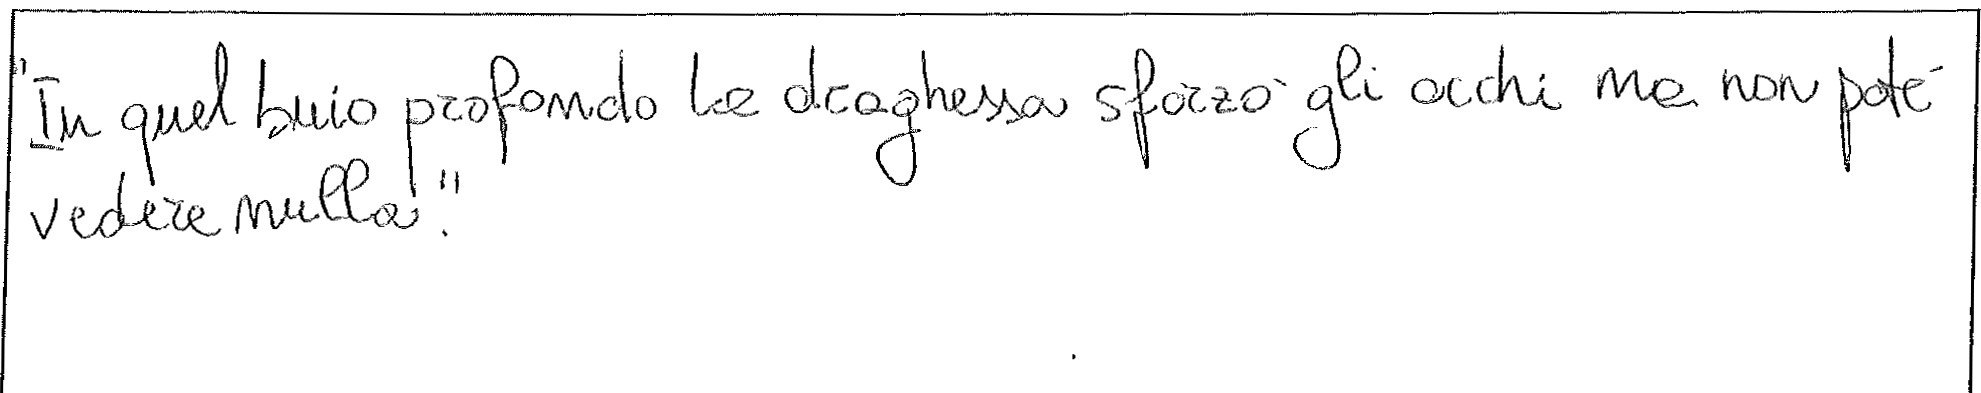 "In quel buio profondo la draghessa sforzò gli occhi ma non poté
vedere nulla."